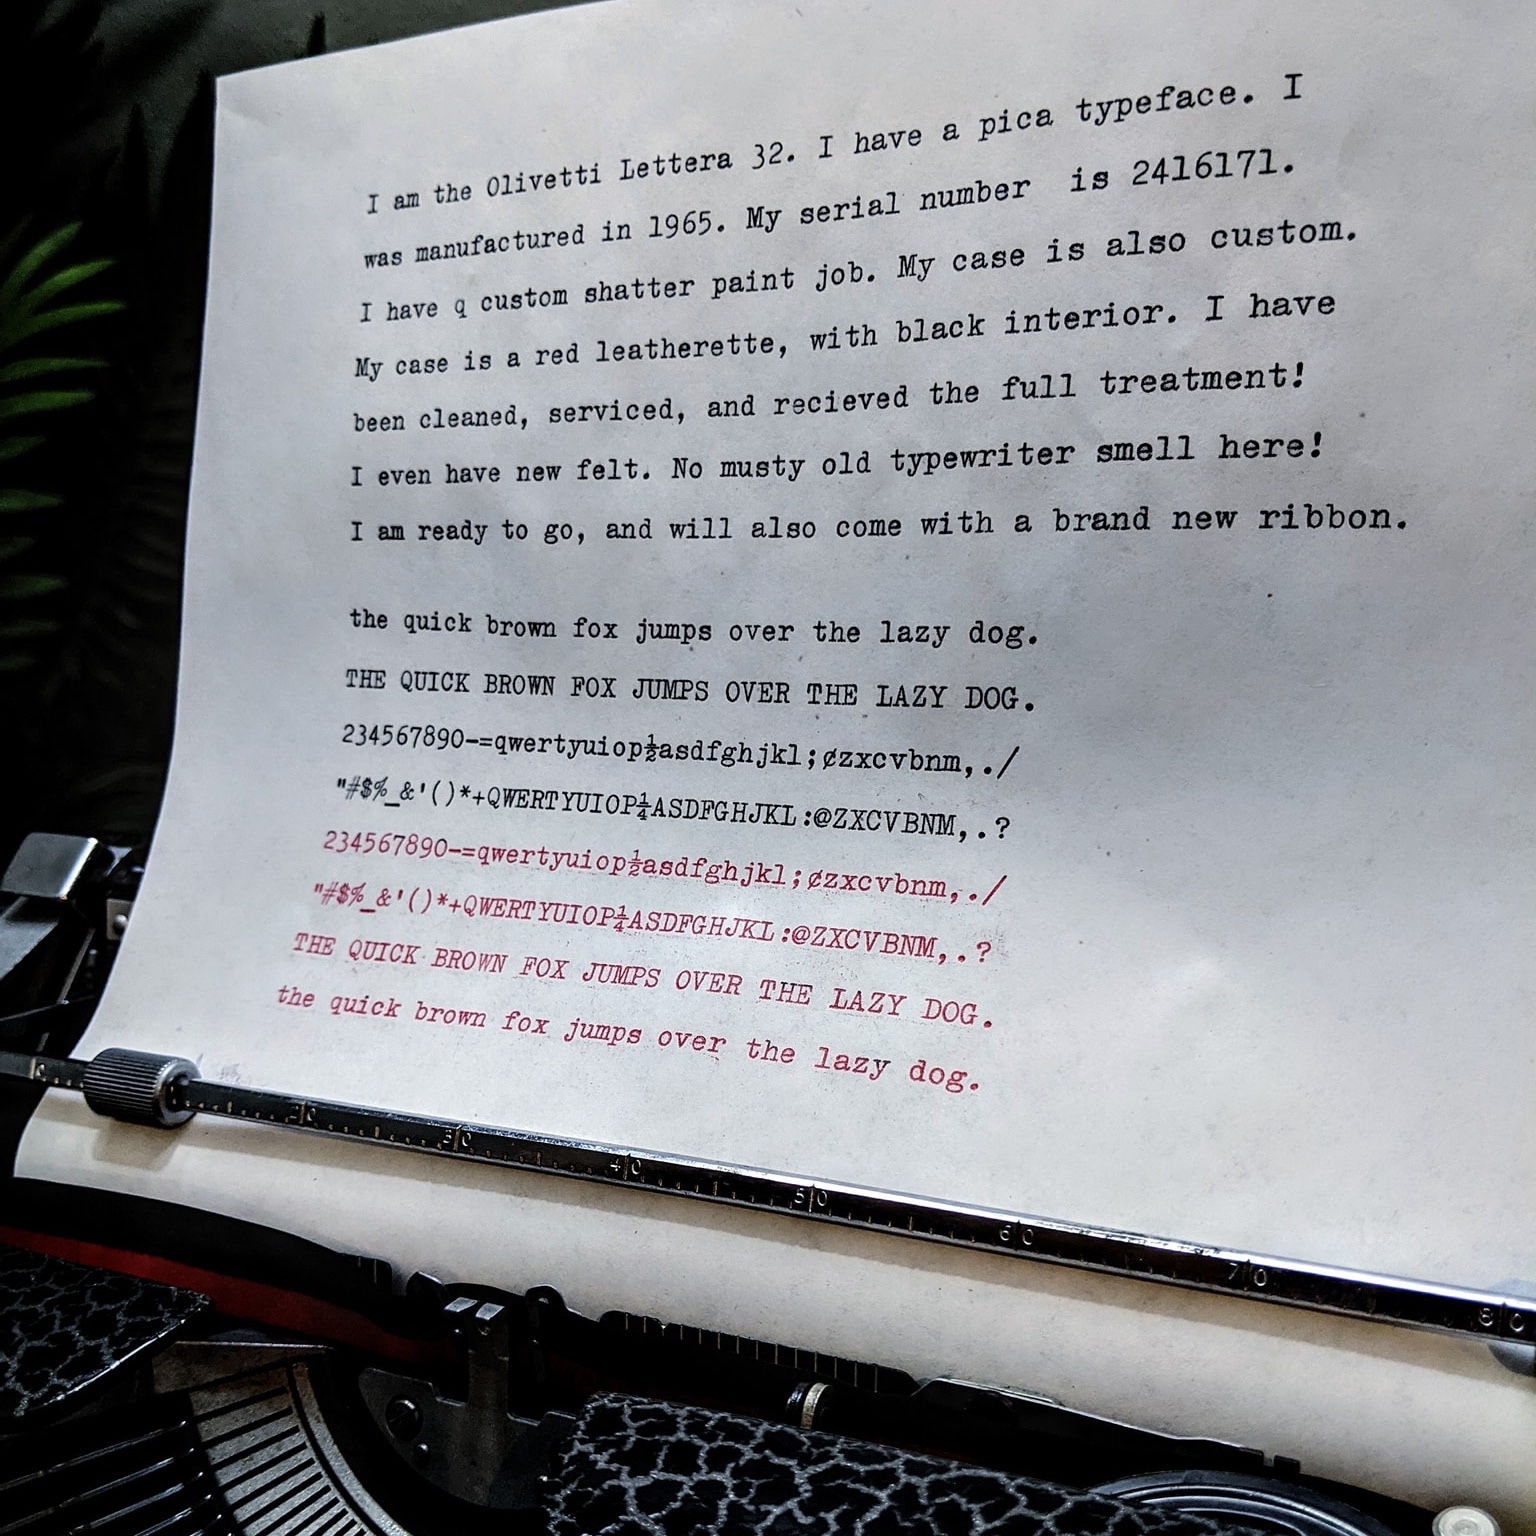 I am the Olivetti Lettera 32. I have a pica typeface. I
was manufactured in 1965. My serial number  is 2416171.
I have q custom shatter paint job. My case is also custom.
My case is a red leatherette, with black interior. I have
been cleaned, serviced, and recieved the full treatment!
I even have new felt. No musty old typewriter smell here!
I am ready to go, and will also come with a brand new ribbon.
the quick brown fox jumps over the lazy dog.
THE QUICK BROWN FOX JUMPS OVER THE LAZY DOG.
234567890-=qwertyuiop½asdfghjkl;¢zxcvbnm,./
"#$%_&'()*+QWERTYUIOP¼ASDFGHJKL:@ZXCVBNM,.?
234567890-=qwertyuiop½asdfghjkl;¢zxcvbnm,./
"#$%_&'()*+QWERTYUIOP¼ASDFGHJKL:@ZXCVBNM,.?
THE QUICK BROWN FOX JUMPS OVER THE LAZY DOG.
the quick brown fox jumps over the lazy dog.
20 30 40 50 60 70 80